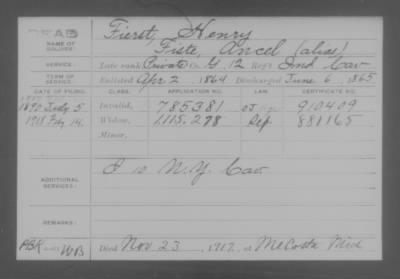 AB Fierst, Henry
NAME OF SOLDIER: Fiste, Ancel (alias)
SERVICE: Late rank Private Co. G, 12 Reg't Ind Cav
TERM OF SERVICE: Enlisted Apr 2, 1864 Discharged June 6, 1865
DATE OF FILING. CLASS. APPLICATION NO. LAW. CERTIFICATE NO.
1890 July 5 Invalid, 785381 910409
1918 Feby 14. Widow, 1115,278 881165
Minor,
ADDITIONAL SERVICES: N.Y. Cav
REMARKS:
PBK WB Died Nov 23, 1917, at McCosta Mich